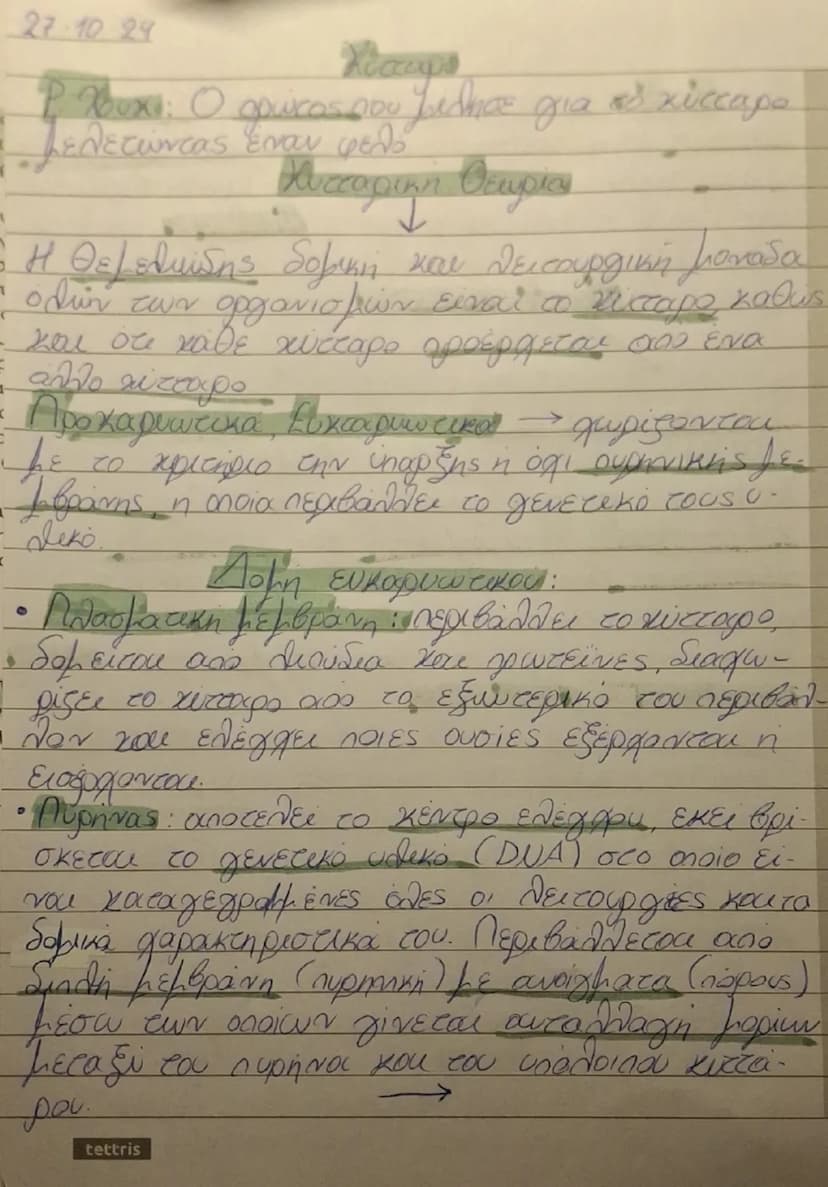 27·10 24
Κύτταρο
Ρ. Χουκ: Ο πρώτος που μίλησε για το κύτταρο
μελετώντας έναν φελό
Κυτταρική Θεωρία
↓
Η θεμελιώδης δομική και λειτουργική μονάδα
όλων των οργανισμών είναι το κύτταρο καθώς
και ότι κάθε κύτταρο προέρχεται από ένα
άλλο κύτταρο
Προκαρυωτικά, Ευκαρυωτικά → χωρίζονται
με το κριτήριο την ύπαρξης ή όχι πυρηνικής με-
μβράνης, η οποία περιβάλλει το γενετικό τους υ-
λικό.
Δομή ευκαρυωτικού:
• Πλασματική μεμβράνη: περιβάλλει το κύτταρο,
δομείται από λιπίδια και πρωτεΐνες, διαχω-
ρίζει το κύτταρο από το εξωτερικό του περιβάλ-
λον και ελέγχει ποιες ουσίες εξέρχονται ή
εισέρχονται.
• Πυρήνας: αποτελεί το κέντρο ελέγχου, εκεί βρί-
σκεται το γενετικό υλικό (DNA) στο οποίο εί-
ναι καταγεγραμμένες όλες οι λειτουργίες και τα
δομικά χαρακτηριστικά του. Περιβάλλεται από
διπλή μεμβράνη (πυρηνική) με ανοίγματα (πόρους)
μέσω των οποίων γίνεται ανταλλαγή μορίων
μεταξύ του πυρήνα και του υπόλοιπου κυττά-
ρου. →
tettris